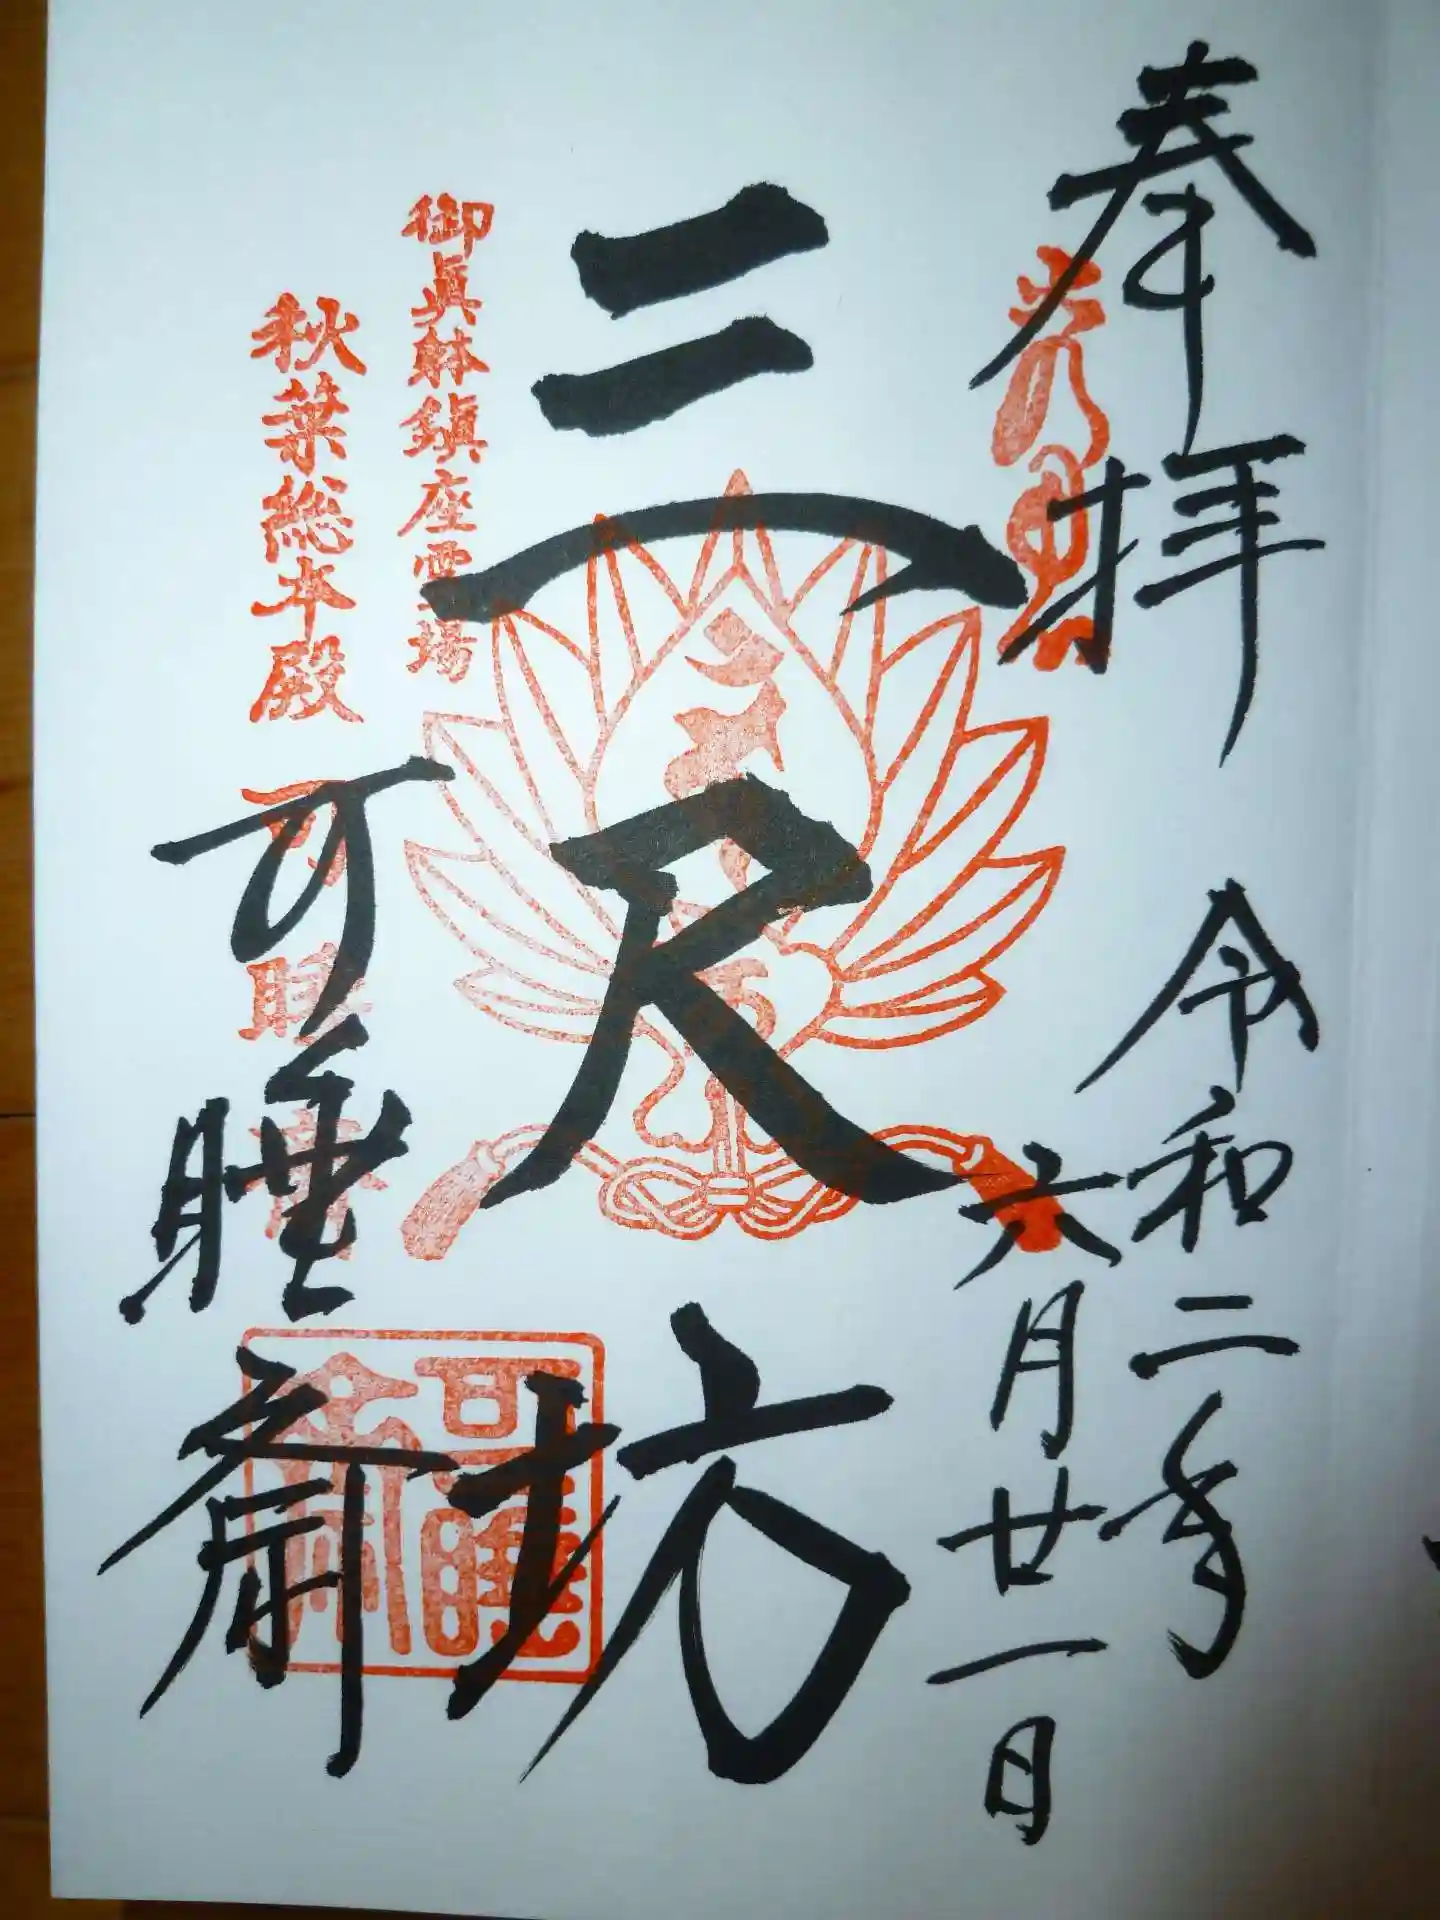 奉拝
令和二年
六月廿一日
三尺坊
御眞躰鎮座霊場
秋葉総本殿
可睡斎
可睡斎